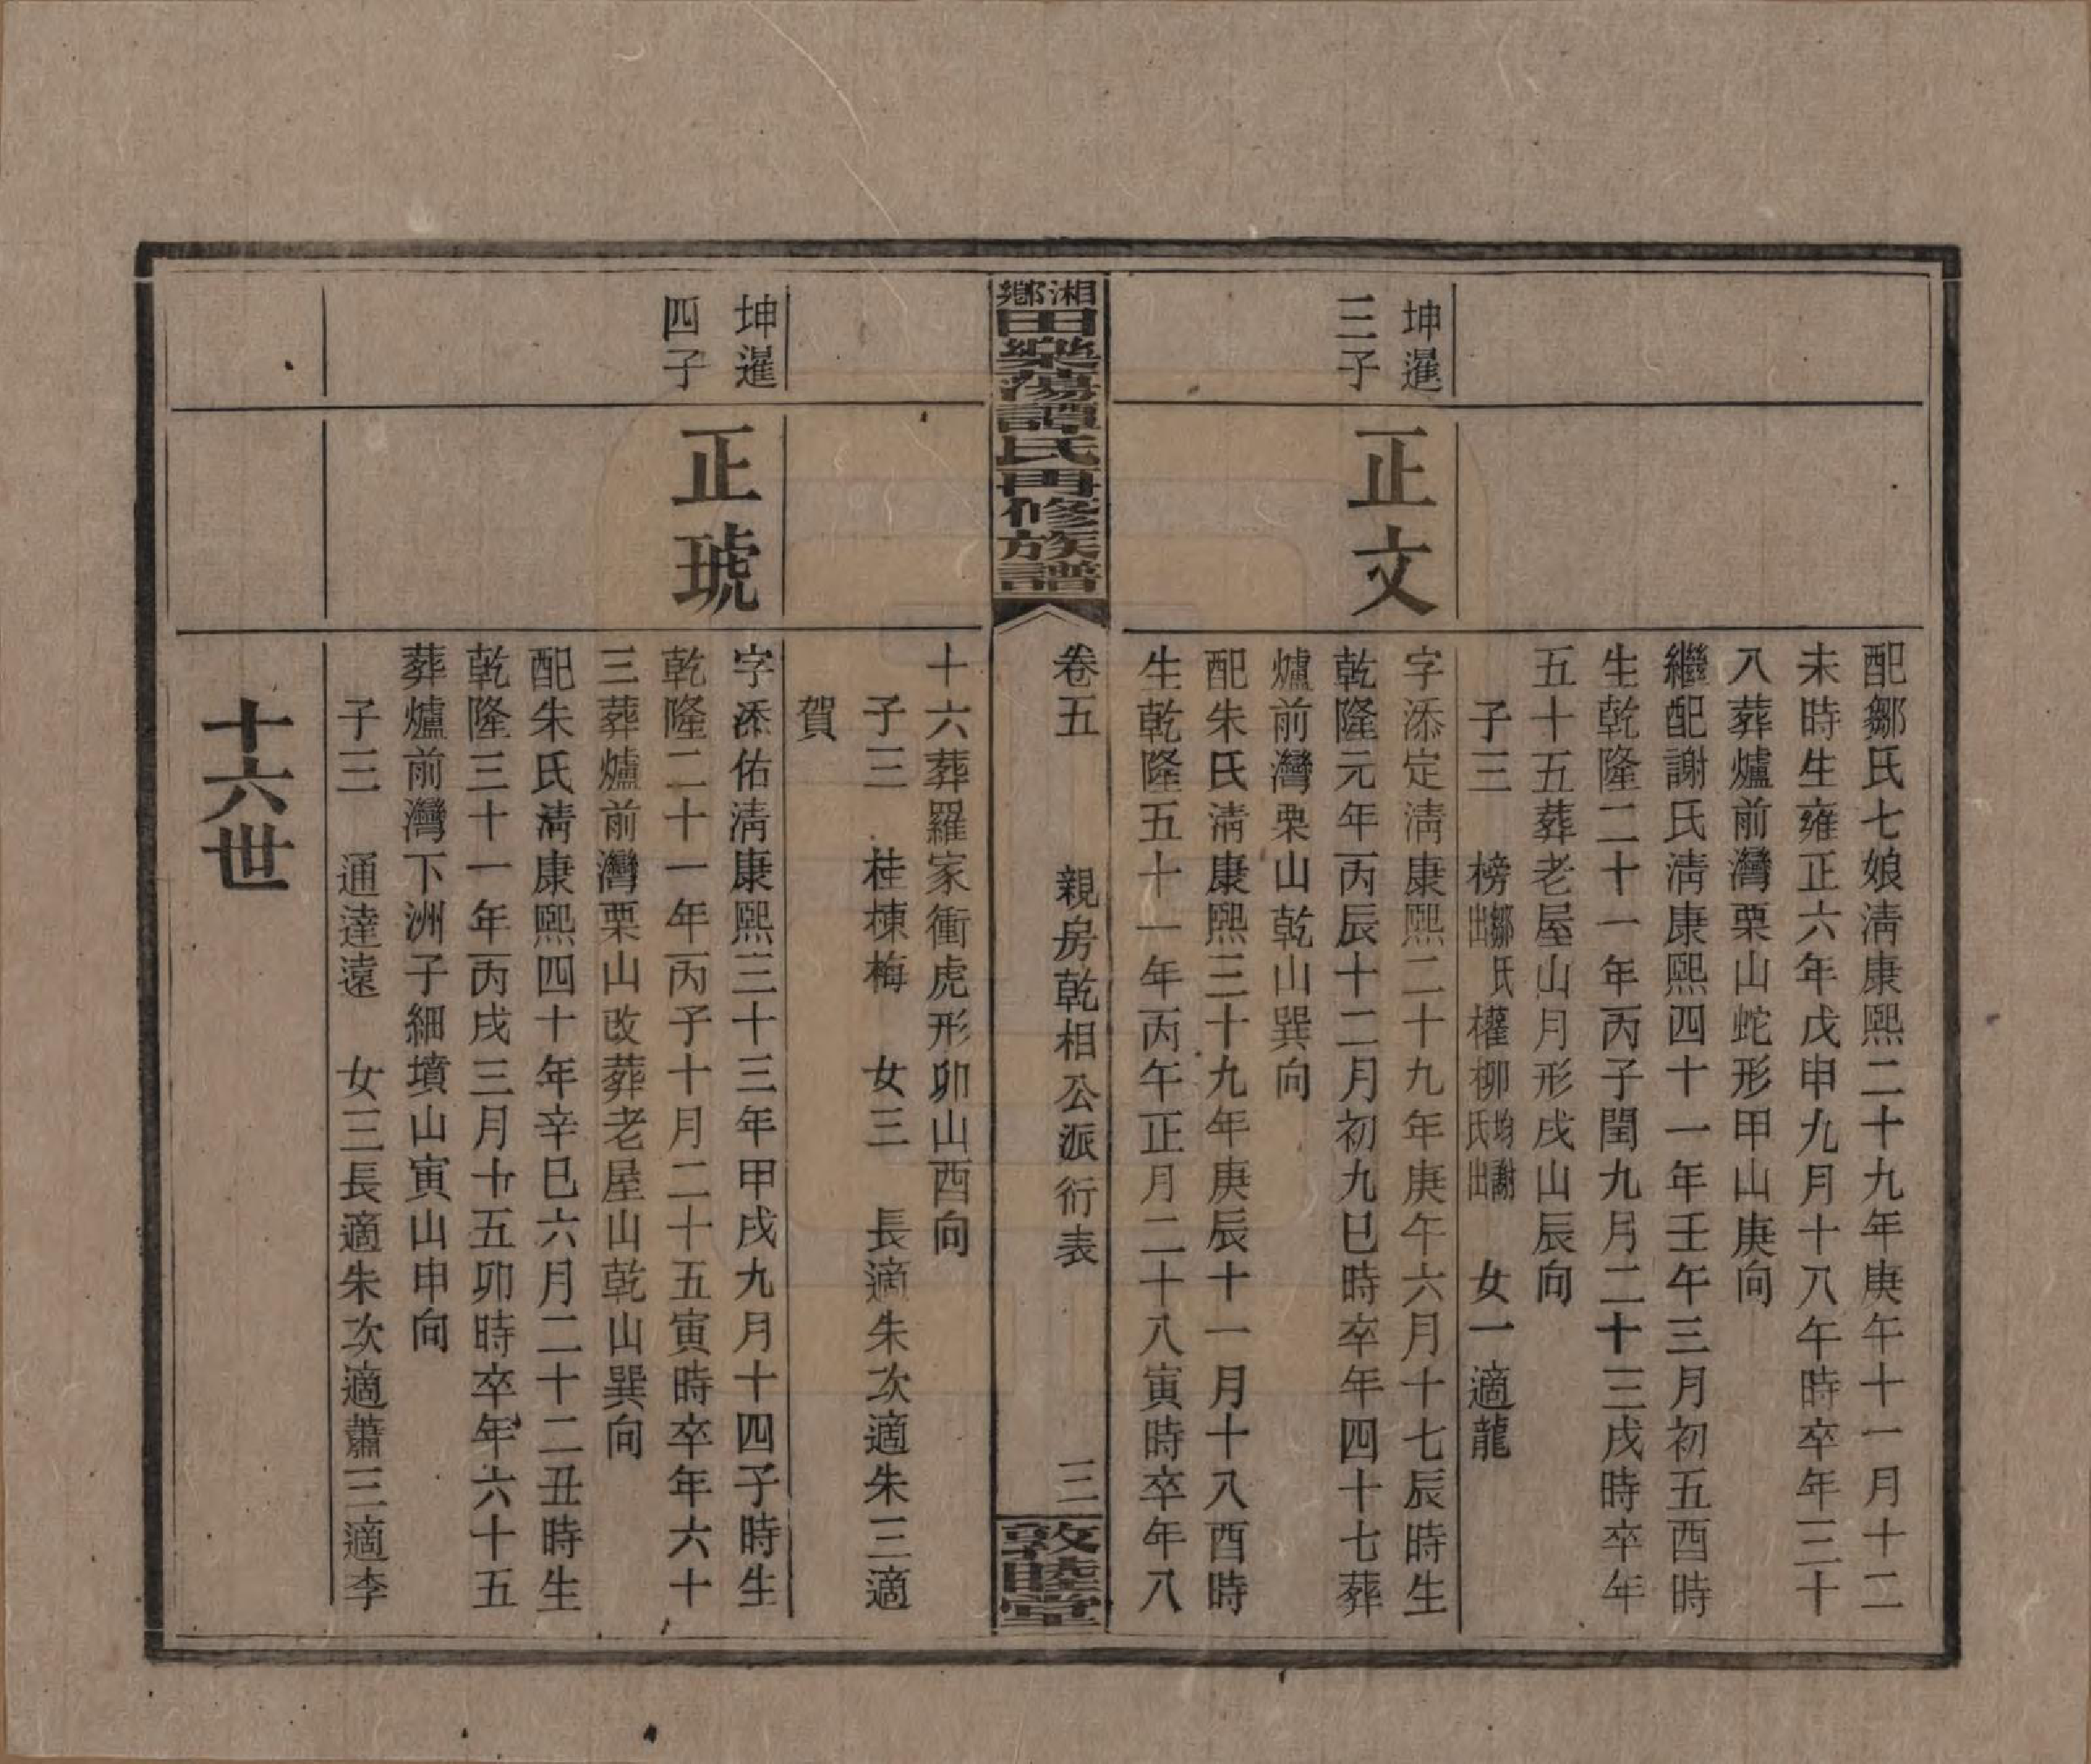 配鄒氏七娘淸康熙二十九年庚午十一月十二
未時生雍正六年戊申九月十八午時卒年三十
八葬爐前灣栗山蛇形甲山庚向
繼配謝氏淸康熙四十一年壬午三月初五酉時
生乾隆二十一年丙子閏九月二十三戌時卒年
五十五葬老屋山月形戌山辰向
子三　榜鄒氏出權柳均謝氏出　女一適龍
坤暹
三子
正文
字添定淸康熙二十九年庚午六月十七辰時生
乾隆元年丙辰十二月初九巳時卒年四十七葬
爐前灣栗山乾山巽向
配朱氏淸康熙三十九年庚辰十一月十八酉時
生乾隆五十一年丙午正月二十八寅時卒年八
湘鄕田樂蕩譚氏再修族譜
卷五　親房乾相公派衍表　三
敦睦堂
十六葬羅家衝虎形卯山酉向
子三　桂棟梅　女三　長適朱次適朱三適
賀
坤暹
四子
正琥
字添佑淸康熙三十三年甲戌九月十四子時生
乾隆二十一年丙子十月二十五寅時卒年六十
三葬爐前灣栗山改葬老屋山乾山巽向
配朱氏淸康熙四十年辛巳六月二十二丑時生
乾隆三十一年丙戌三月十五卯時卒年六十五
葬爐前灣下洲子細墳山寅山申向
子三　通達遠　女三長適朱次適蕭三適李
十六世